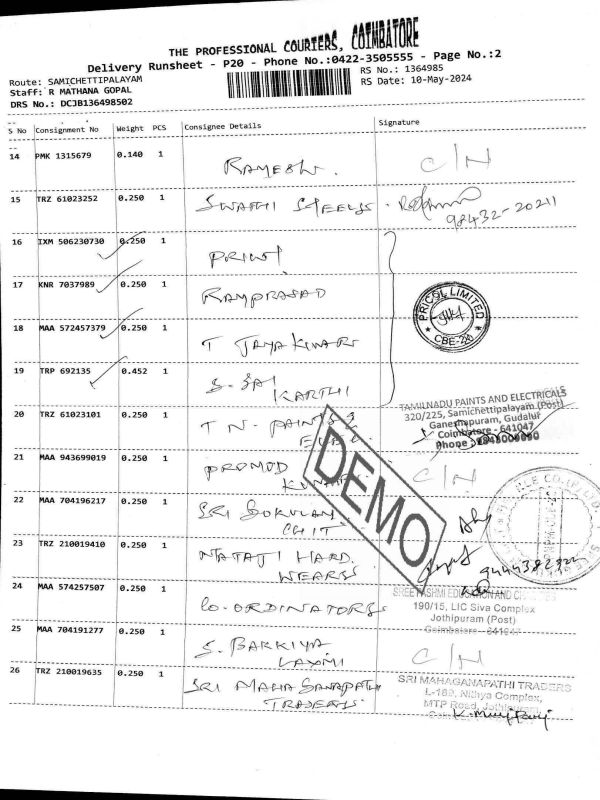 THE PROFESSIONAL COURIERS, COIMBATORE
Delivery Runsheet - P20 - Phone No.:0422-3505555 - Page No.:2
Route: SAMICHETTIPALAYAM
RS No.: 1364985
Staff: R MATHANA GOPAL
RS Date: 10-May-2024
DRS No.: DCJB136498502
S No Consignment No Weight PCS Consignee Details Signature
14 PMK 1315679 0.140 1 RAMESH. C/N
15 TRZ 61023252 0.250 1 SWATHI STEELS
98432-20211
16 IXM 506230730 0.250 1
17 KNR 7037989 0.250 1 RAMPRASAD
PRICOL LIMITED
CBE-20
18 MAA 572457379 0.250 1 T JAYA KUMAR
19 TRP 692135 0.452 1 S. SAI
KARTHI
TAMILNADU PAINTS AND ELECTRICALS
320/225, Samichettipalayam (Post)
Ganeshapuram, Gudalur
Coimbatore - 641047
20 TRZ 61023101 0.250 1 TN- PAINTS &
21 MAA 943699019 0.250 1 PROMOD
KUMAR C/N
DEMO
22 MAA 704196217 0.250 1 SRI GOKULAM
CHIT
23 TRZ 210019410 0.250 1 NATAJI HARD
WEARS
9444382322
24 MAA 574257507 0.250 1 CO-ORDINATORS
190/15, LIC Siva Complex
Jothipuram (Post)
Coimbatore - 641047
25 MAA 704191277 0.250 1 S. BAKKIYA
LAXMI C/N
26 TRZ 210019635 0.250 1 SRI MAHA GANAPATHI
TRADERS
SRI MAHAGANAPATHI TRADERS
L-189, Nithya Complex,
MTP Road, Jothipuram,